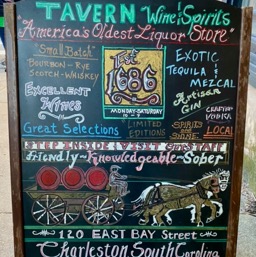 TAVERN Wine & Spirits
"America's Oldest Liquor Store"
"Small Batch"
BOURBON - RYE
SCOTCH - WHISKEY
Est.
1686
MONDAY-SATURDAY
10 - 7
EXOTIC
TEQUILA &
MEZCAL
Artisan
Gin
EXCELLENT
Wines
Great Selections
LIMITED
EDITIONS
CRAFTED
VODKA
SPIRITS
LOCAL
STEP INSIDE & VISIT OUR STAFF
Friendly - Knowledgeable - Sober
120 EAST BAY Street
Charleston South Carolina